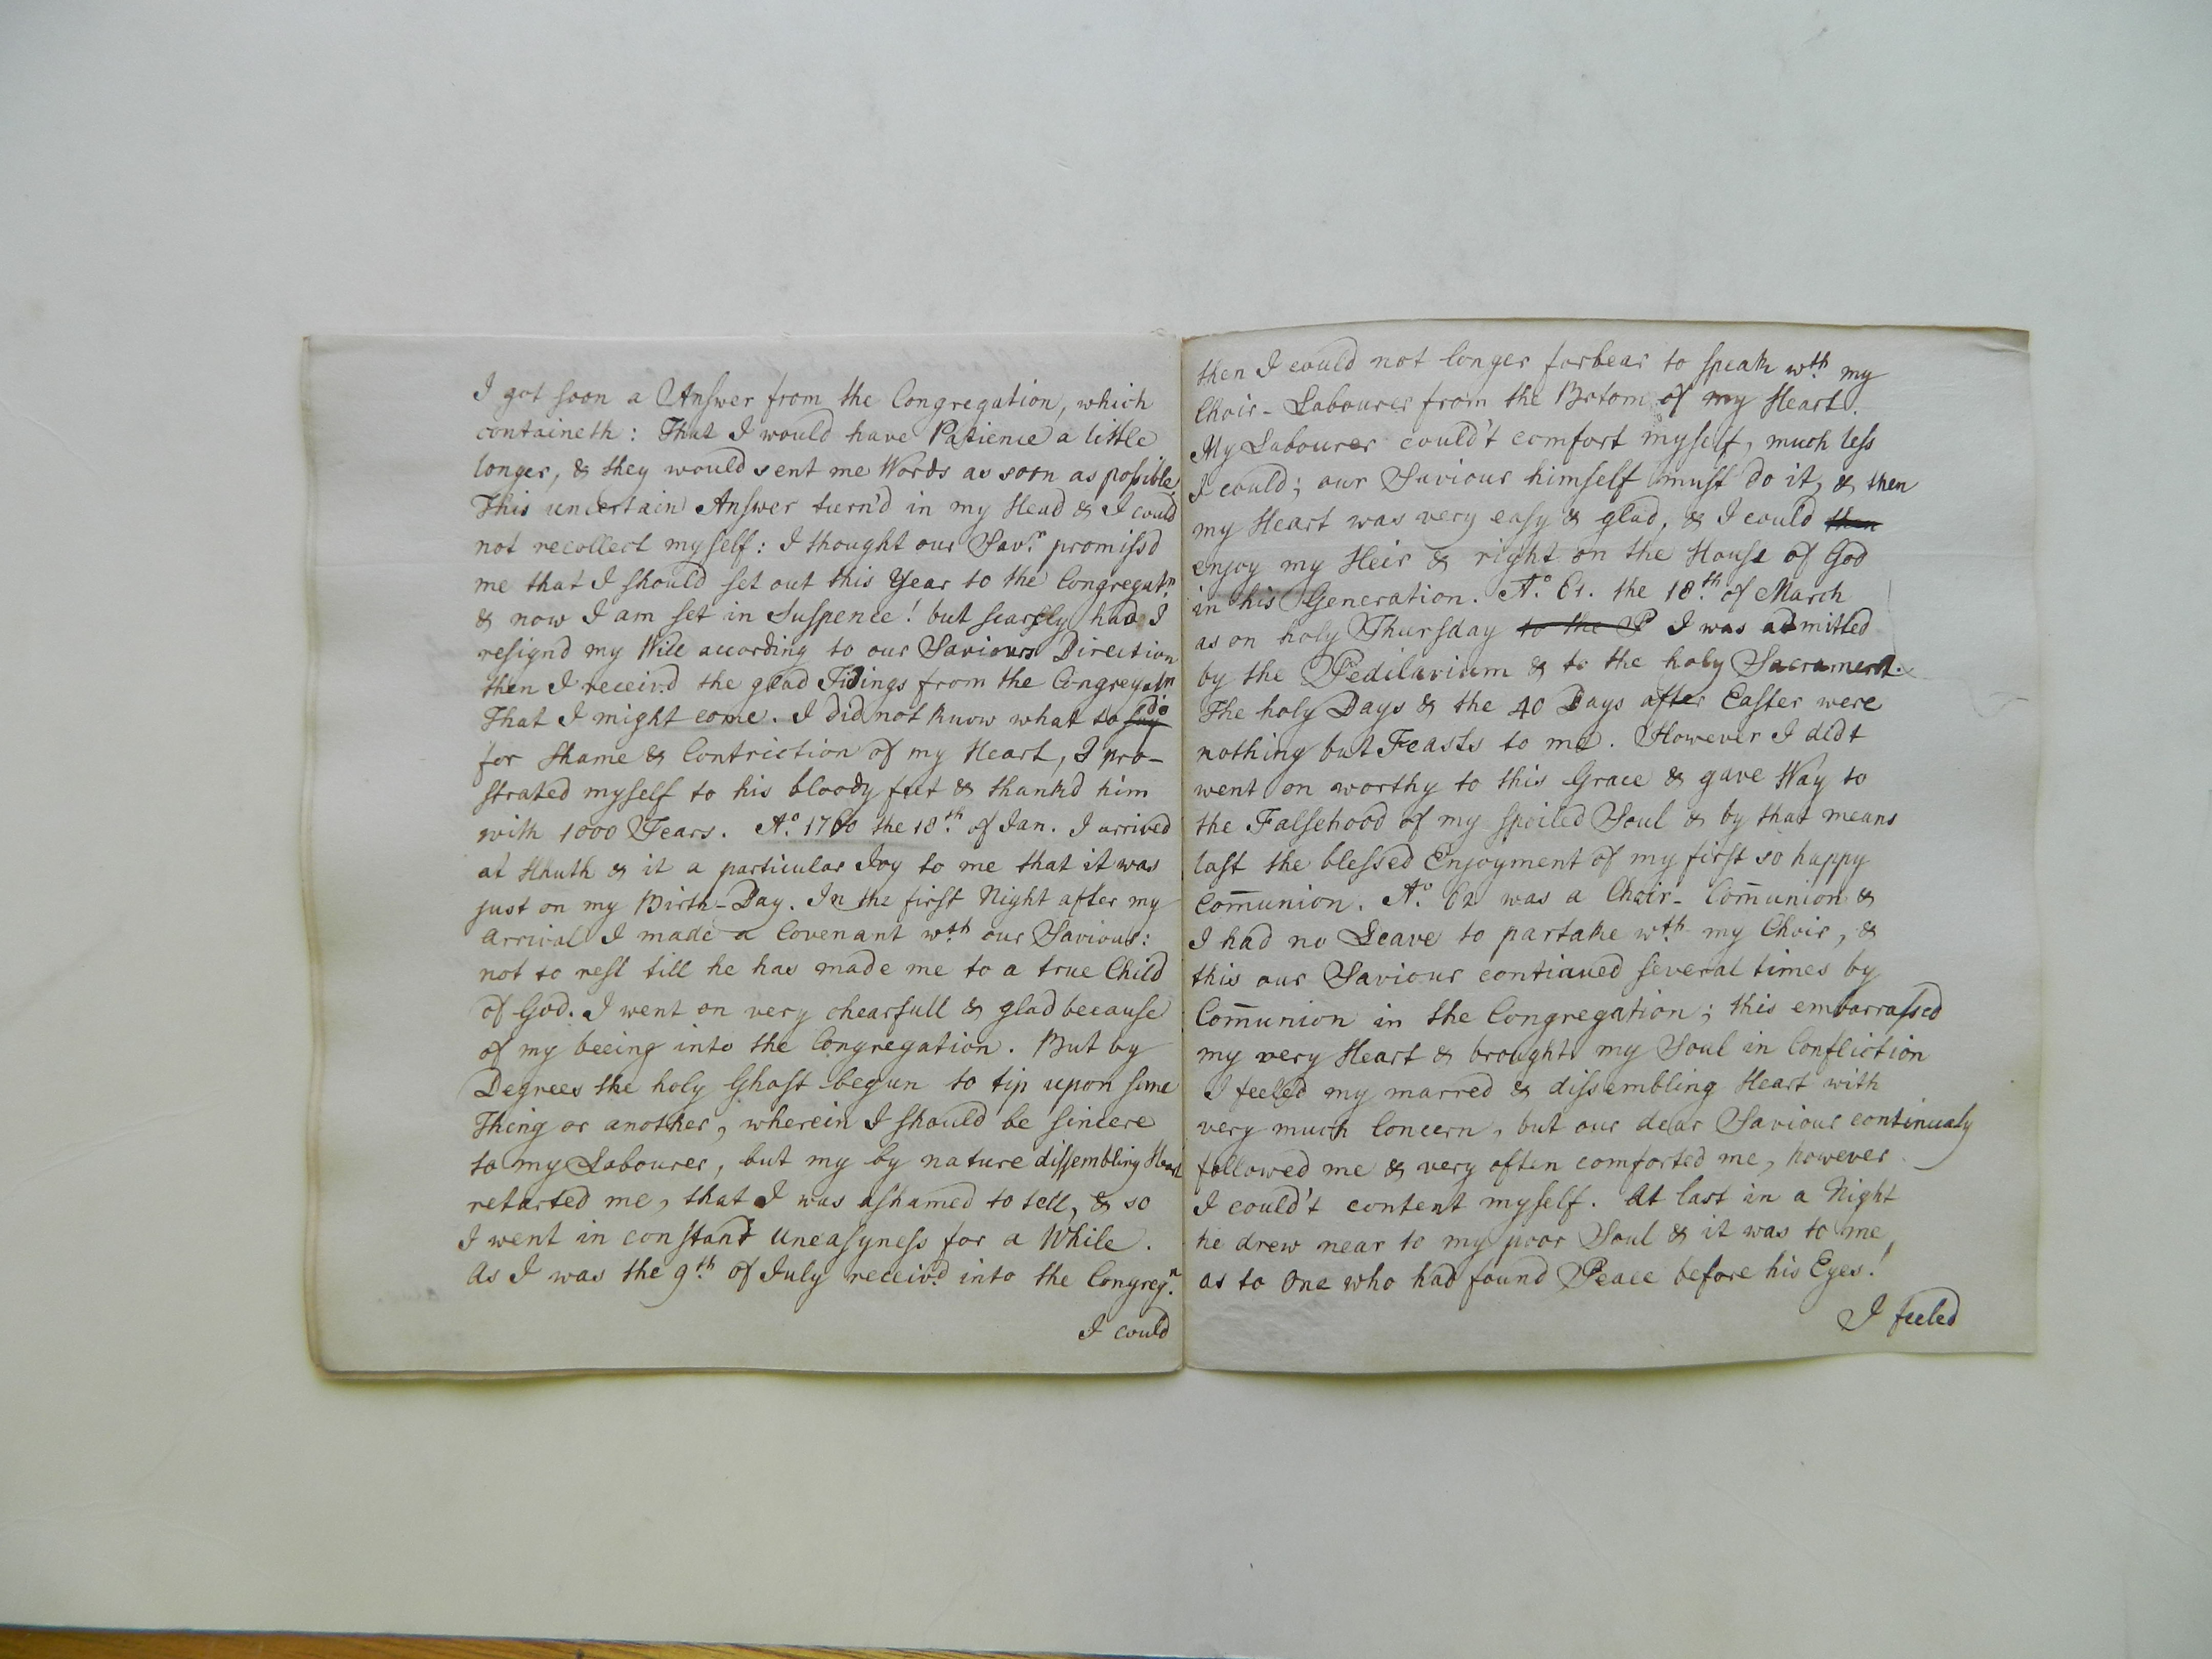 I got soon a Answer from the Congregation, which
containeth: That I would have Patience a little
longer, & they would sent me Words as soon as possible
This uncertain Answer turn'd in my Head & I could
not recollect myself: I thought our Savr. promiss'd
me that I should set out this Year to the Congregatn.
& now I am set in Suspence! but scarsly had I
resign'd my Will according to our Saviours Direction
then I receiv'd the glad Tidings from the Congregatn
That I might come. I did not know what to say do
for Shame & Contriction of my Heart, I pro-
strated myself to his bloody feet & thank'd him
with 1000 Tears. Ao. 1760 the 18th. of Jan. I arrived
at Hhuth & it a particular Joy to me that it was
just on my Birth-Day. In the first Night after my
arrival I made a Covenant wth. our Saviour:
not to rest till he has made me to a true Child
of God. I went on very chearfull & glad because
of my beeing into the Congregation. But by
Degrees the holy Ghost begun to tip upon some
Thing or another, wherein I should be sincere
to my Labourer, but my by nature dissembling Heart
retarted me, that I was ashamed to tell, & so
I went in constant Uneasyness for a While.
As I was the 9th. of July receiv'd into the Congregn.
I could
then I could not longer forbear to speak wth. my
Choir-Labourer from the Botom of my Heart.
My Labourer could't comfort myself, much less
I could; our Saviour himself must do it, & then
my Heart was very easy & glad, & I could then
enjoy my Heir & right on the House of God
in his Generation. Ao. 61. the 18th. of March
as on holy Thursday to the P I was admitted
by the Pedilavium & to the holy Sacrament.
The holy Days & the 40 Days after Easter were
nothing but Feasts to me. However I did't
went on worthy to this Grace & gave Way to
the Falsehood of my spoiled Soul & by that means
last the blessed Enjoyment of my first so happy
Com̄union. Ao. 62 was a Choir-Com̄union &
I had no Leave to partake wth. my Choir, &
this our Saviour continued several times by
Com̄union in the Congregation; this embarrassed
my very Heart & brought my Soul in Confliction
I feeled my marred & dissembling Heart with
very much Concern, but our dear Saviour continualy
followed me & very often comforted me, however
I could't content myself. At last in a Night
he drew near to my poor Soul & it was to me,
as to One who had found Peace before his Eyes!
I feeled